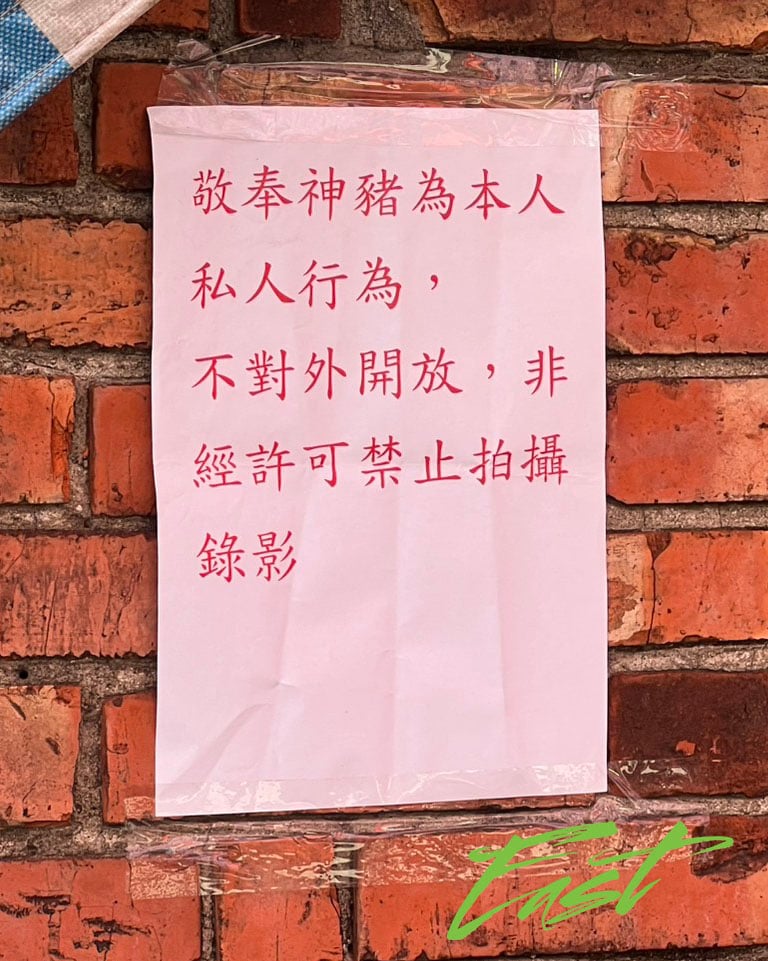 敬奉神豬為本人
私人行為，
不對外開放，非
經許可禁止拍攝
錄影
East